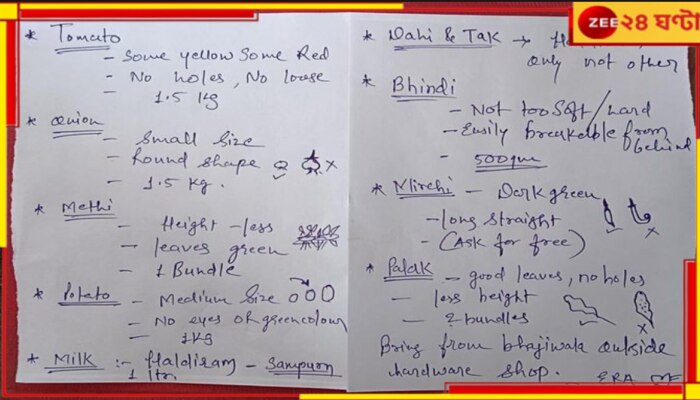 ZEE ২৪ ঘণ্টা
* Tomato
- Some yellow Some Red
- No holes, No loose
- 1.5 kg
* Onion
- Small Size
- Round shape
- 1.5 kg.
* Methi
- Height - less
- leaves green
- 1 Bundle
* Potato - Medium Size
- No eyes or green colour
- 1 kg
* Milk :- Haldiram - Sampurn
1 ltr.
* Dahi & Tak →
only not other
* Bhindi
- Not too soft / hard
- Easily breakable from
behind
- 500gm
* Mirchi - Dark green
- long straight
- (Ask for free)
* Palak - good leaves, no holes
- less height
- 2 bundles
Bring from bhajiwala outside
hardware shop.